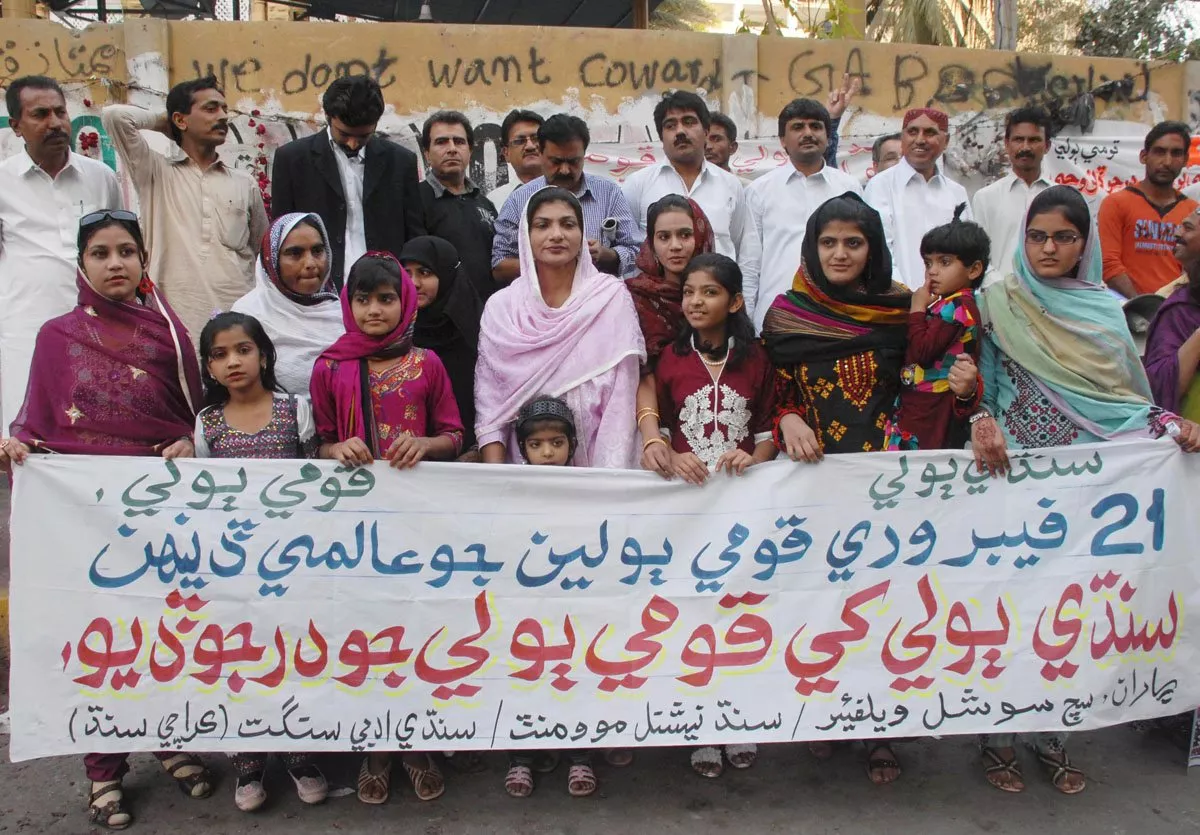 We dont want Coward
قومي ٻولي
سنڌي ٻولي قومي ٻولي .
21 فيبروري قومي ٻولين جو عالمي ڏينهن
سنڌي ٻولي کي قومي ٻولي جو درجو ڏيو.
پاران، سچ سوشل ويلفيئر / سنڌ نيشنل موومنٽ / سنڌي ادبي سنگت (ڪراچي سنڌ)